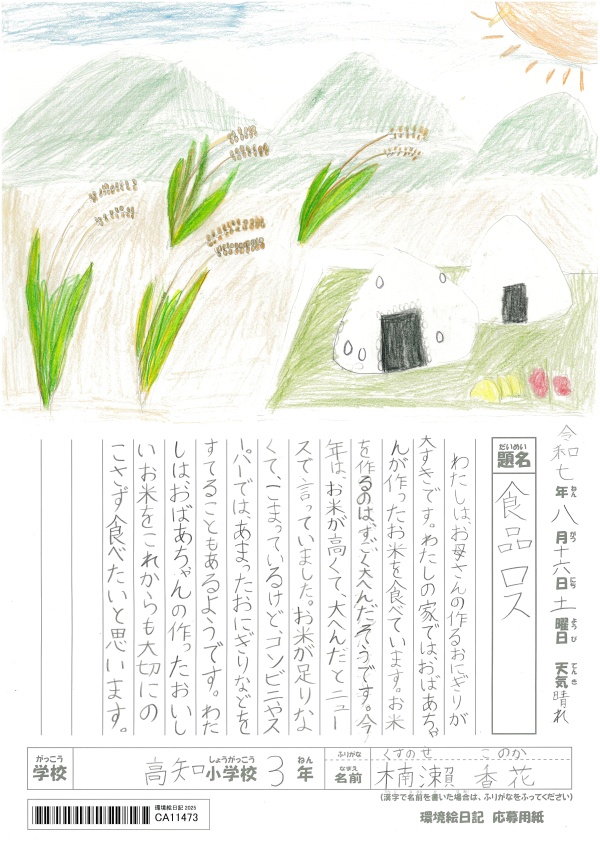 令和七年八月十六日土曜日 天気晴れ
ねん がつ にち ようび てんき
だいめい
題名
食品ロス
わたしは、お母さんの作るおにぎりが
大すきです。わたしの家では、おばあちゃ
んが作ったお米を食べています。お米
を作るのは、すごく大へんだそうです。今
年は、お米が高くて、大へんだとニュー
スで言っていました。お米が足りな
くて、こまっているけど、コンビニやス
ーパーでは、あまったおにぎりなどを
すてることもあるようです。わた
しは、おばあちゃんの作ったおいし
いお米を、これからも大切にの
こさず食べたいと思います。
がっこう しょうがっこう ねん
学校 高知小学校 3年
ふりがな くすのせ このか
なまえ
名前 楠瀬 香花
(漢字で名前を書いた場合は、ふりがなをふってください)
環境絵日記 2025
CA11473
環境絵日記 応募用紙